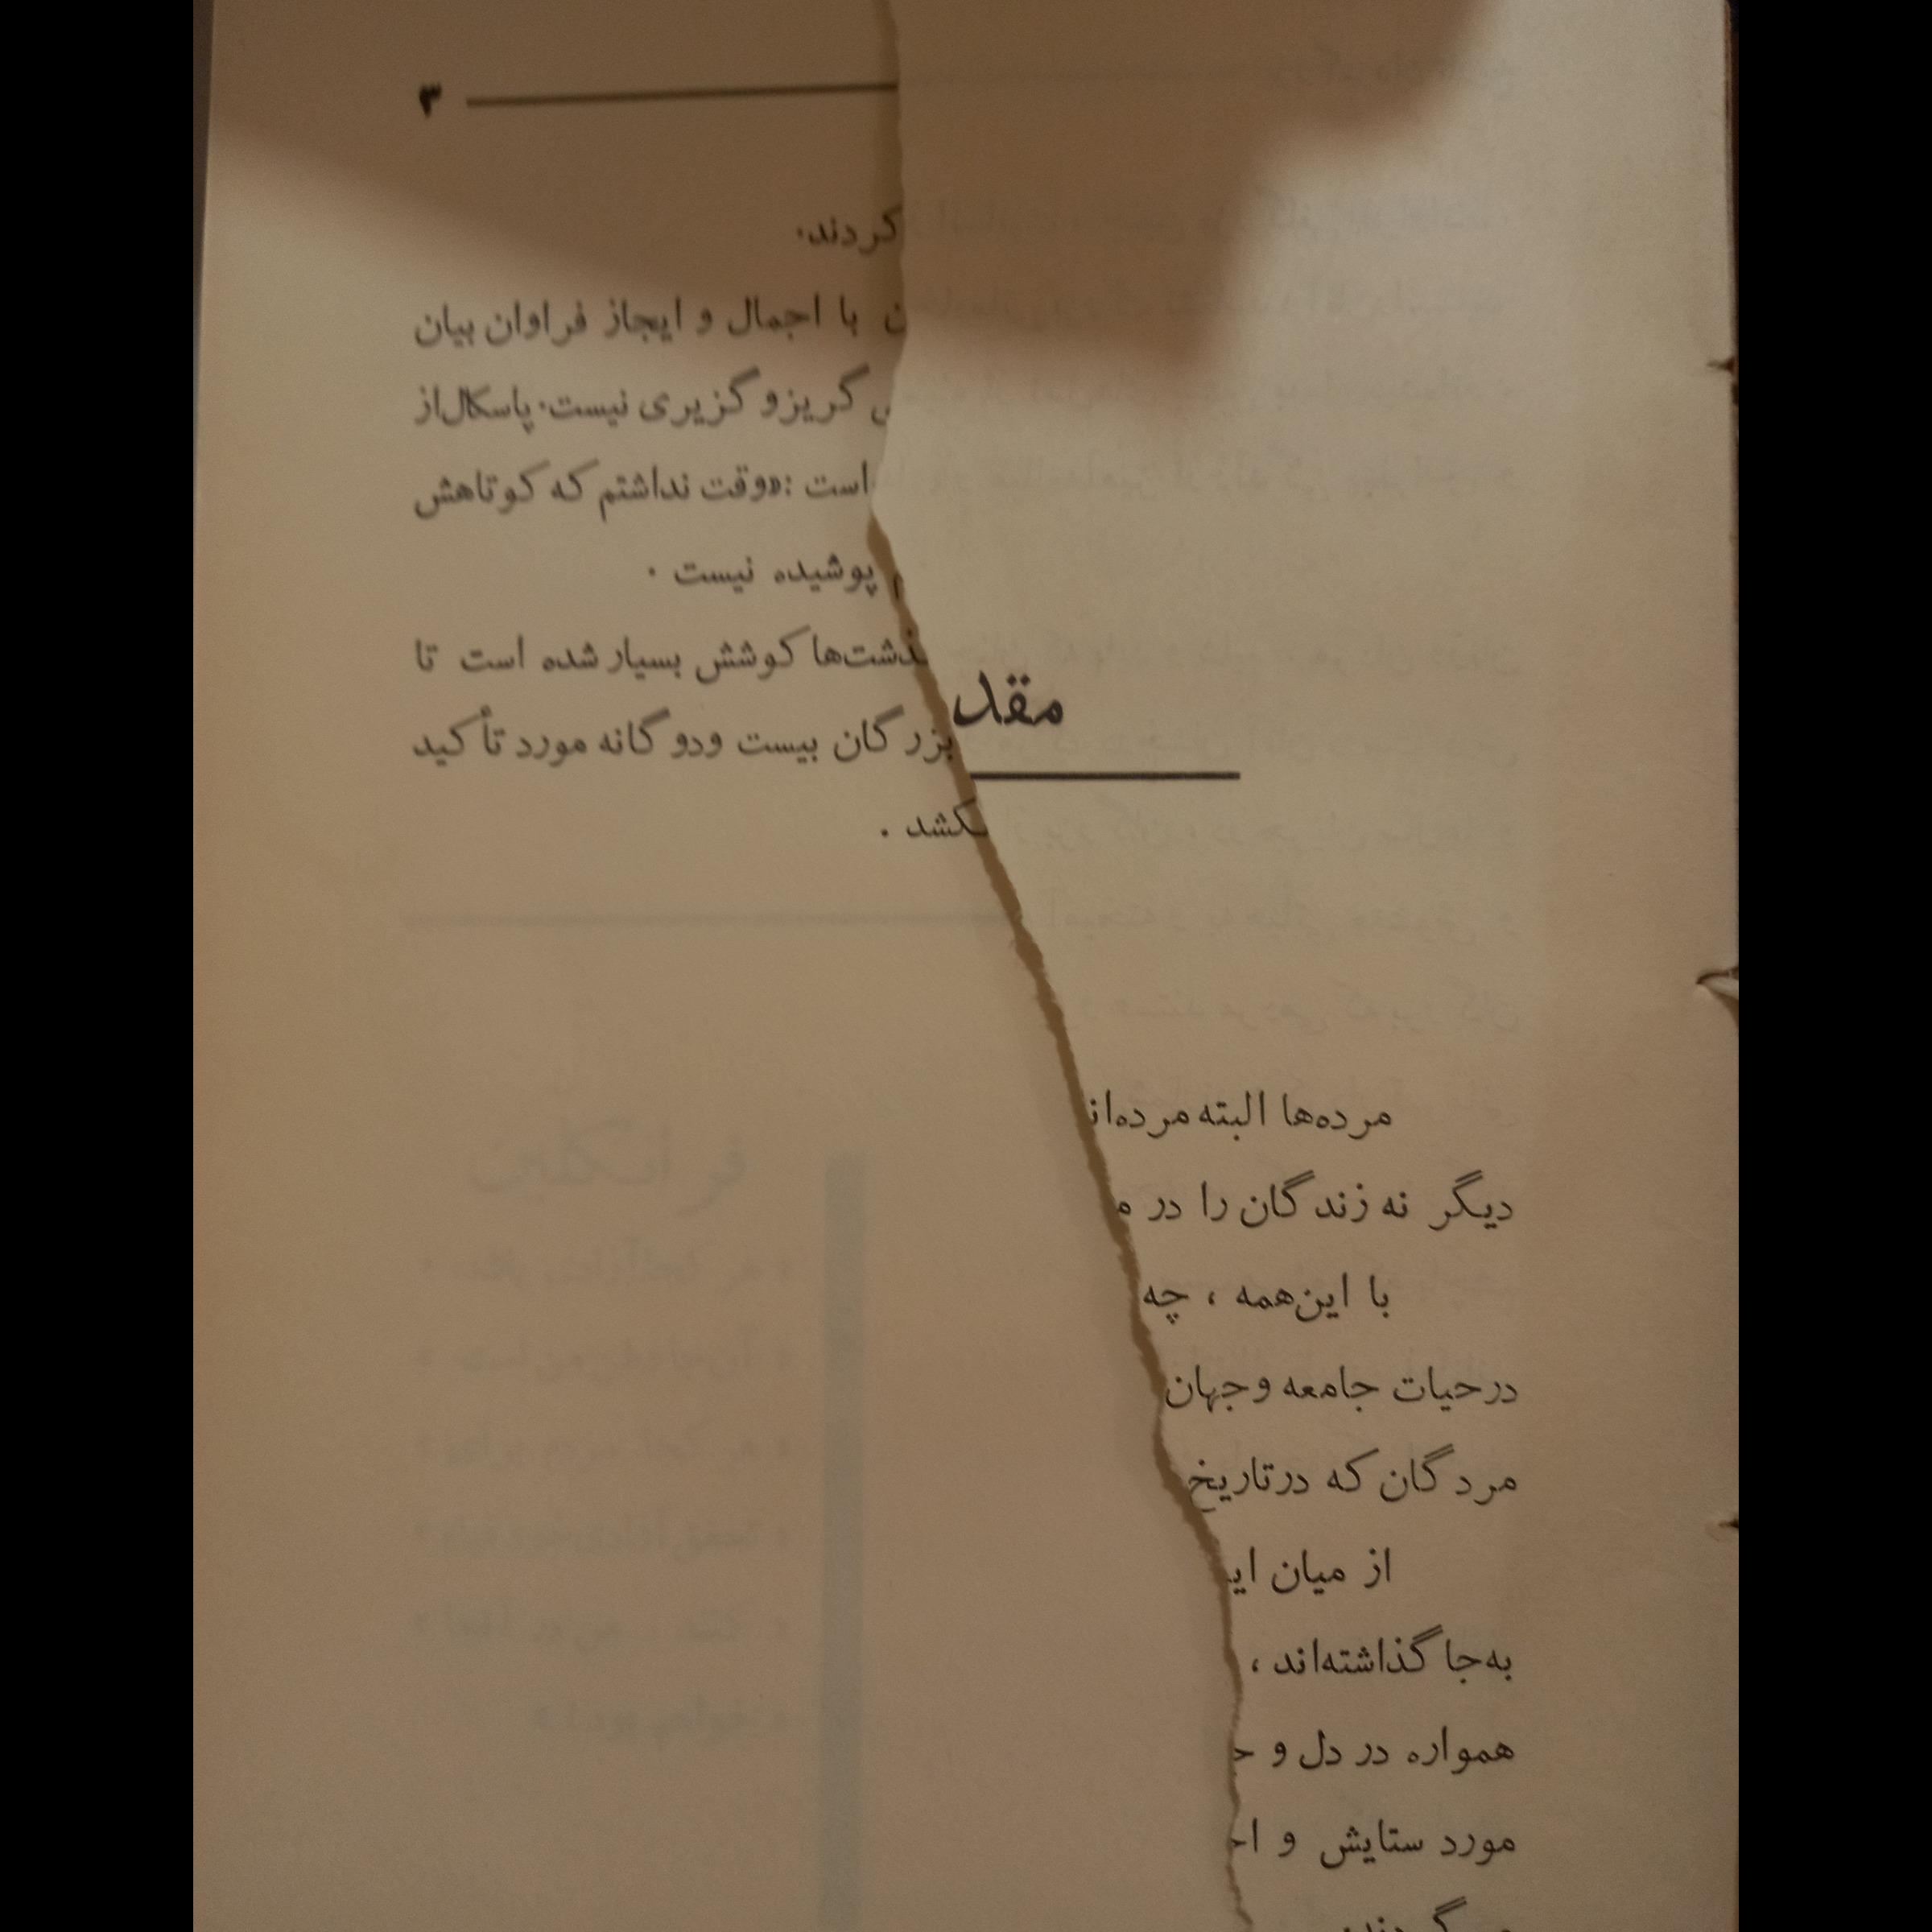 ۳
کردند.
با اجمال و ایجاز فراوان بیان
گریز و گزیری نیست. پاسکال از
است : «وقت نداشتم که کوتاهش
پوشیده نیست .
ذشت‌ها کوشش بسیار شده است تا
بزرگان بیست و دو گانه مورد تأکید
کشد .
مقد
مرده‌ها البته مرده‌اند
دیگر نه زندگان را در م
با این‌همه ، چه
در حیات جامعه و جهان
مردگان که در تاریخ
از میان ایـ
به‌جا گذاشته‌اند ،
همواره در دل و
مورد ستایش و احـ